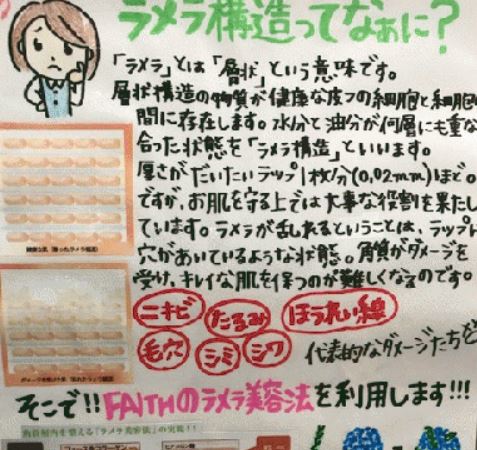 ラメラ構造ってなぁに?
「ラメラ」とは「層状」という意味です。
層状構造の物質が健康な皮フの細胞と細胞
間に存在します。水分と油分が何層にも重な
合った状態を「ラメラ構造」といいます。
厚さがだいたいラップ1枚分(0,02mm)ほど。
ですが、お肌を守る上では大事な役割を果たし
ています。ラメラが乱れるということは、ラップに
穴があいているような状態。角質がダメージを
受け、キレイな肌を保つのが難しくなるのです。
ニキビ たるみ ほうれい線
毛穴 シミ シワ 代表的なダメージたちを
そこで!!FAITHのラメラ美容法を利用します!!!
角質層内を整える「ラメラ美容法」の実践!!